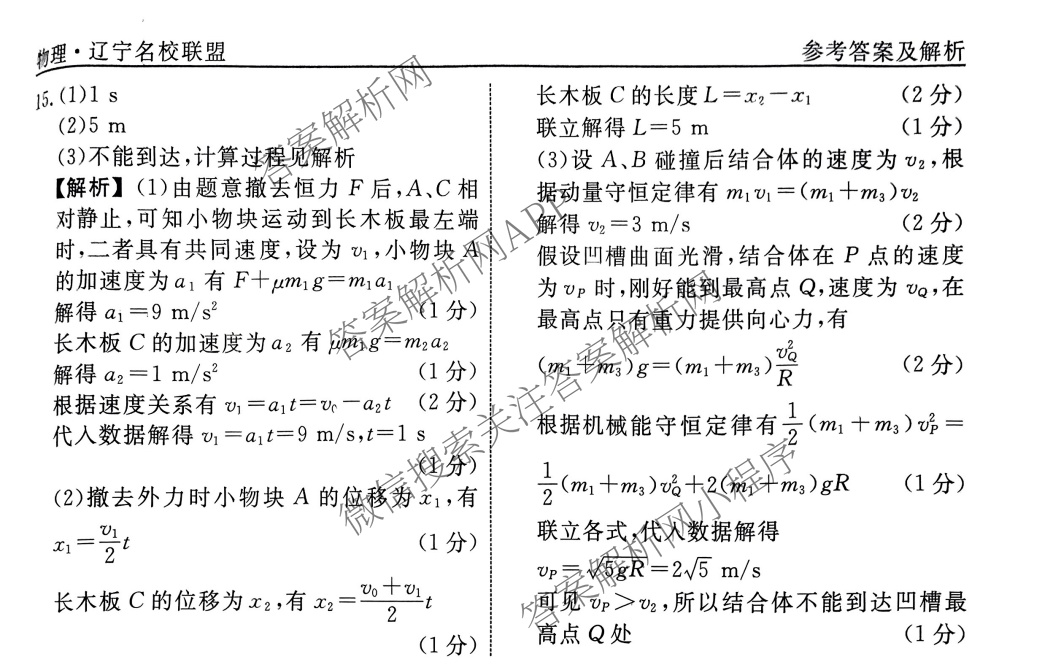 物理·辽宁名校联盟
参考答案及解析
15.(1)1 s
(2)5 m
(3)不能到达,计算过程见解析
【解析】(1)由题意撤去恒力 F 后,A、C 相
对静止,可知小物块运动到长木板最左端
时,二者具有共同速度,设为 v₁,小物块 A
的加速度为 a₁ 有 F+μm₁g=m₁a₁
解得 a₁=9 m/s² (1 分)
长木板 C 的加速度为 a₂ 有 μm₁g=m₂a₂
解得 a₂=1 m/s² (1 分)
根据速度关系有 v₁=a₁t=v₀-a₂t (2 分)
代入数据解得 v₁=a₁t=9 m/s,t=1 s
(1 分)
(2)撤去外力时小物块 A 的位移为 x₁,有
x₁=v₁/2 t (1 分)
长木板 C 的位移为 x₂,有 x₂=(v₀+v₁)/2 t
(1 分)
长木板 C 的长度 L=x₂-x₁ (2 分)
联立解得 L=5 m (1 分)
(3)设 A、B 碰撞后结合体的速度为 v₂,根
据动量守恒定律有 m₁v₁=(m₁+m₃)v₂
解得 v₂=3 m/s (2 分)
假设凹槽曲面光滑,结合体在 P 点的速度
为 v_P 时,刚好能到最高点 Q,速度为 v_Q,在
最高点只有重力提供向心力,有
(m₁+m₃)g=(m₁+m₃)v_Q²/R (2 分)
根据机械能守恒定律有 1/2(m₁+m₃)v_P²=
1/2(m₁+m₃)v_Q²+2(m₁+m₃)gR (1 分)
联立各式,代入数据解得
v_P=√5gR=2√5 m/s
可见 v_P>v₂,所以结合体不能到达凹槽最
高点 Q 处 (1 分)
答案解析网
答案解析网APP
微信搜索关注答案解析网
答案解析网小程序